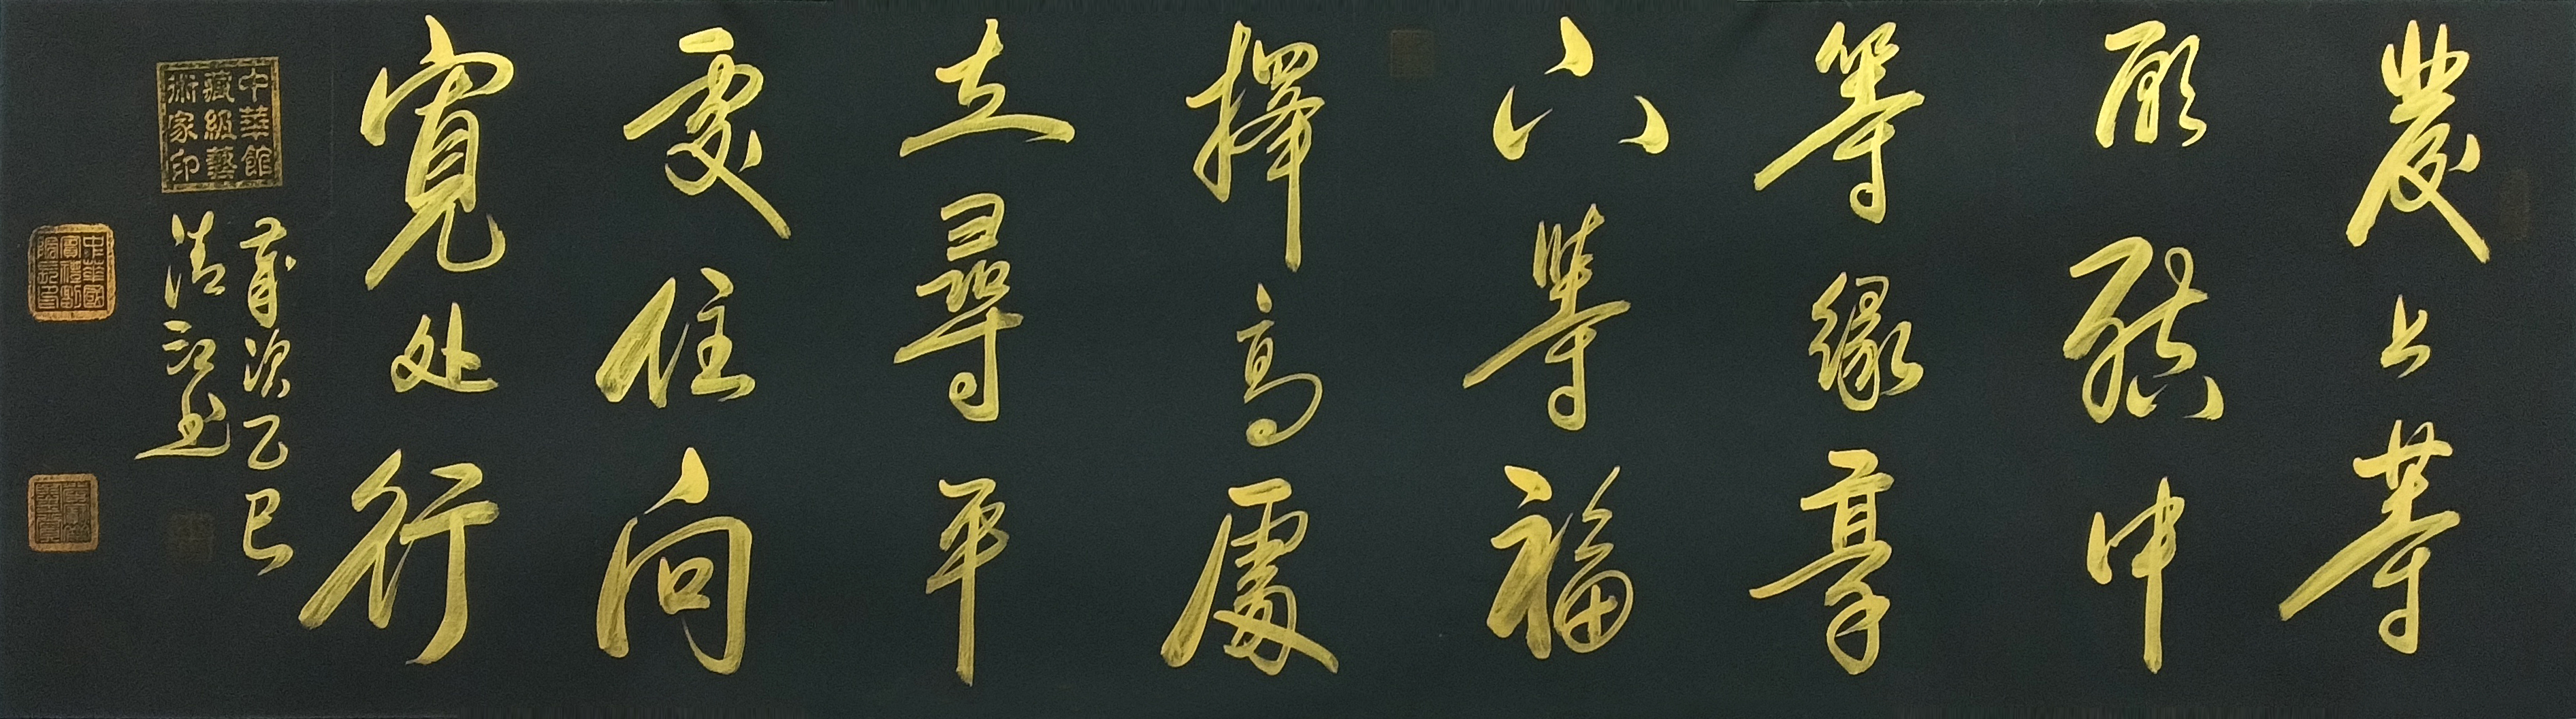 發上等
願結中
等緣享
下等福
擇高處
立尋平
處住向
寬处行
歲次乙巳
清江書
中華館
藏級藝
術家印